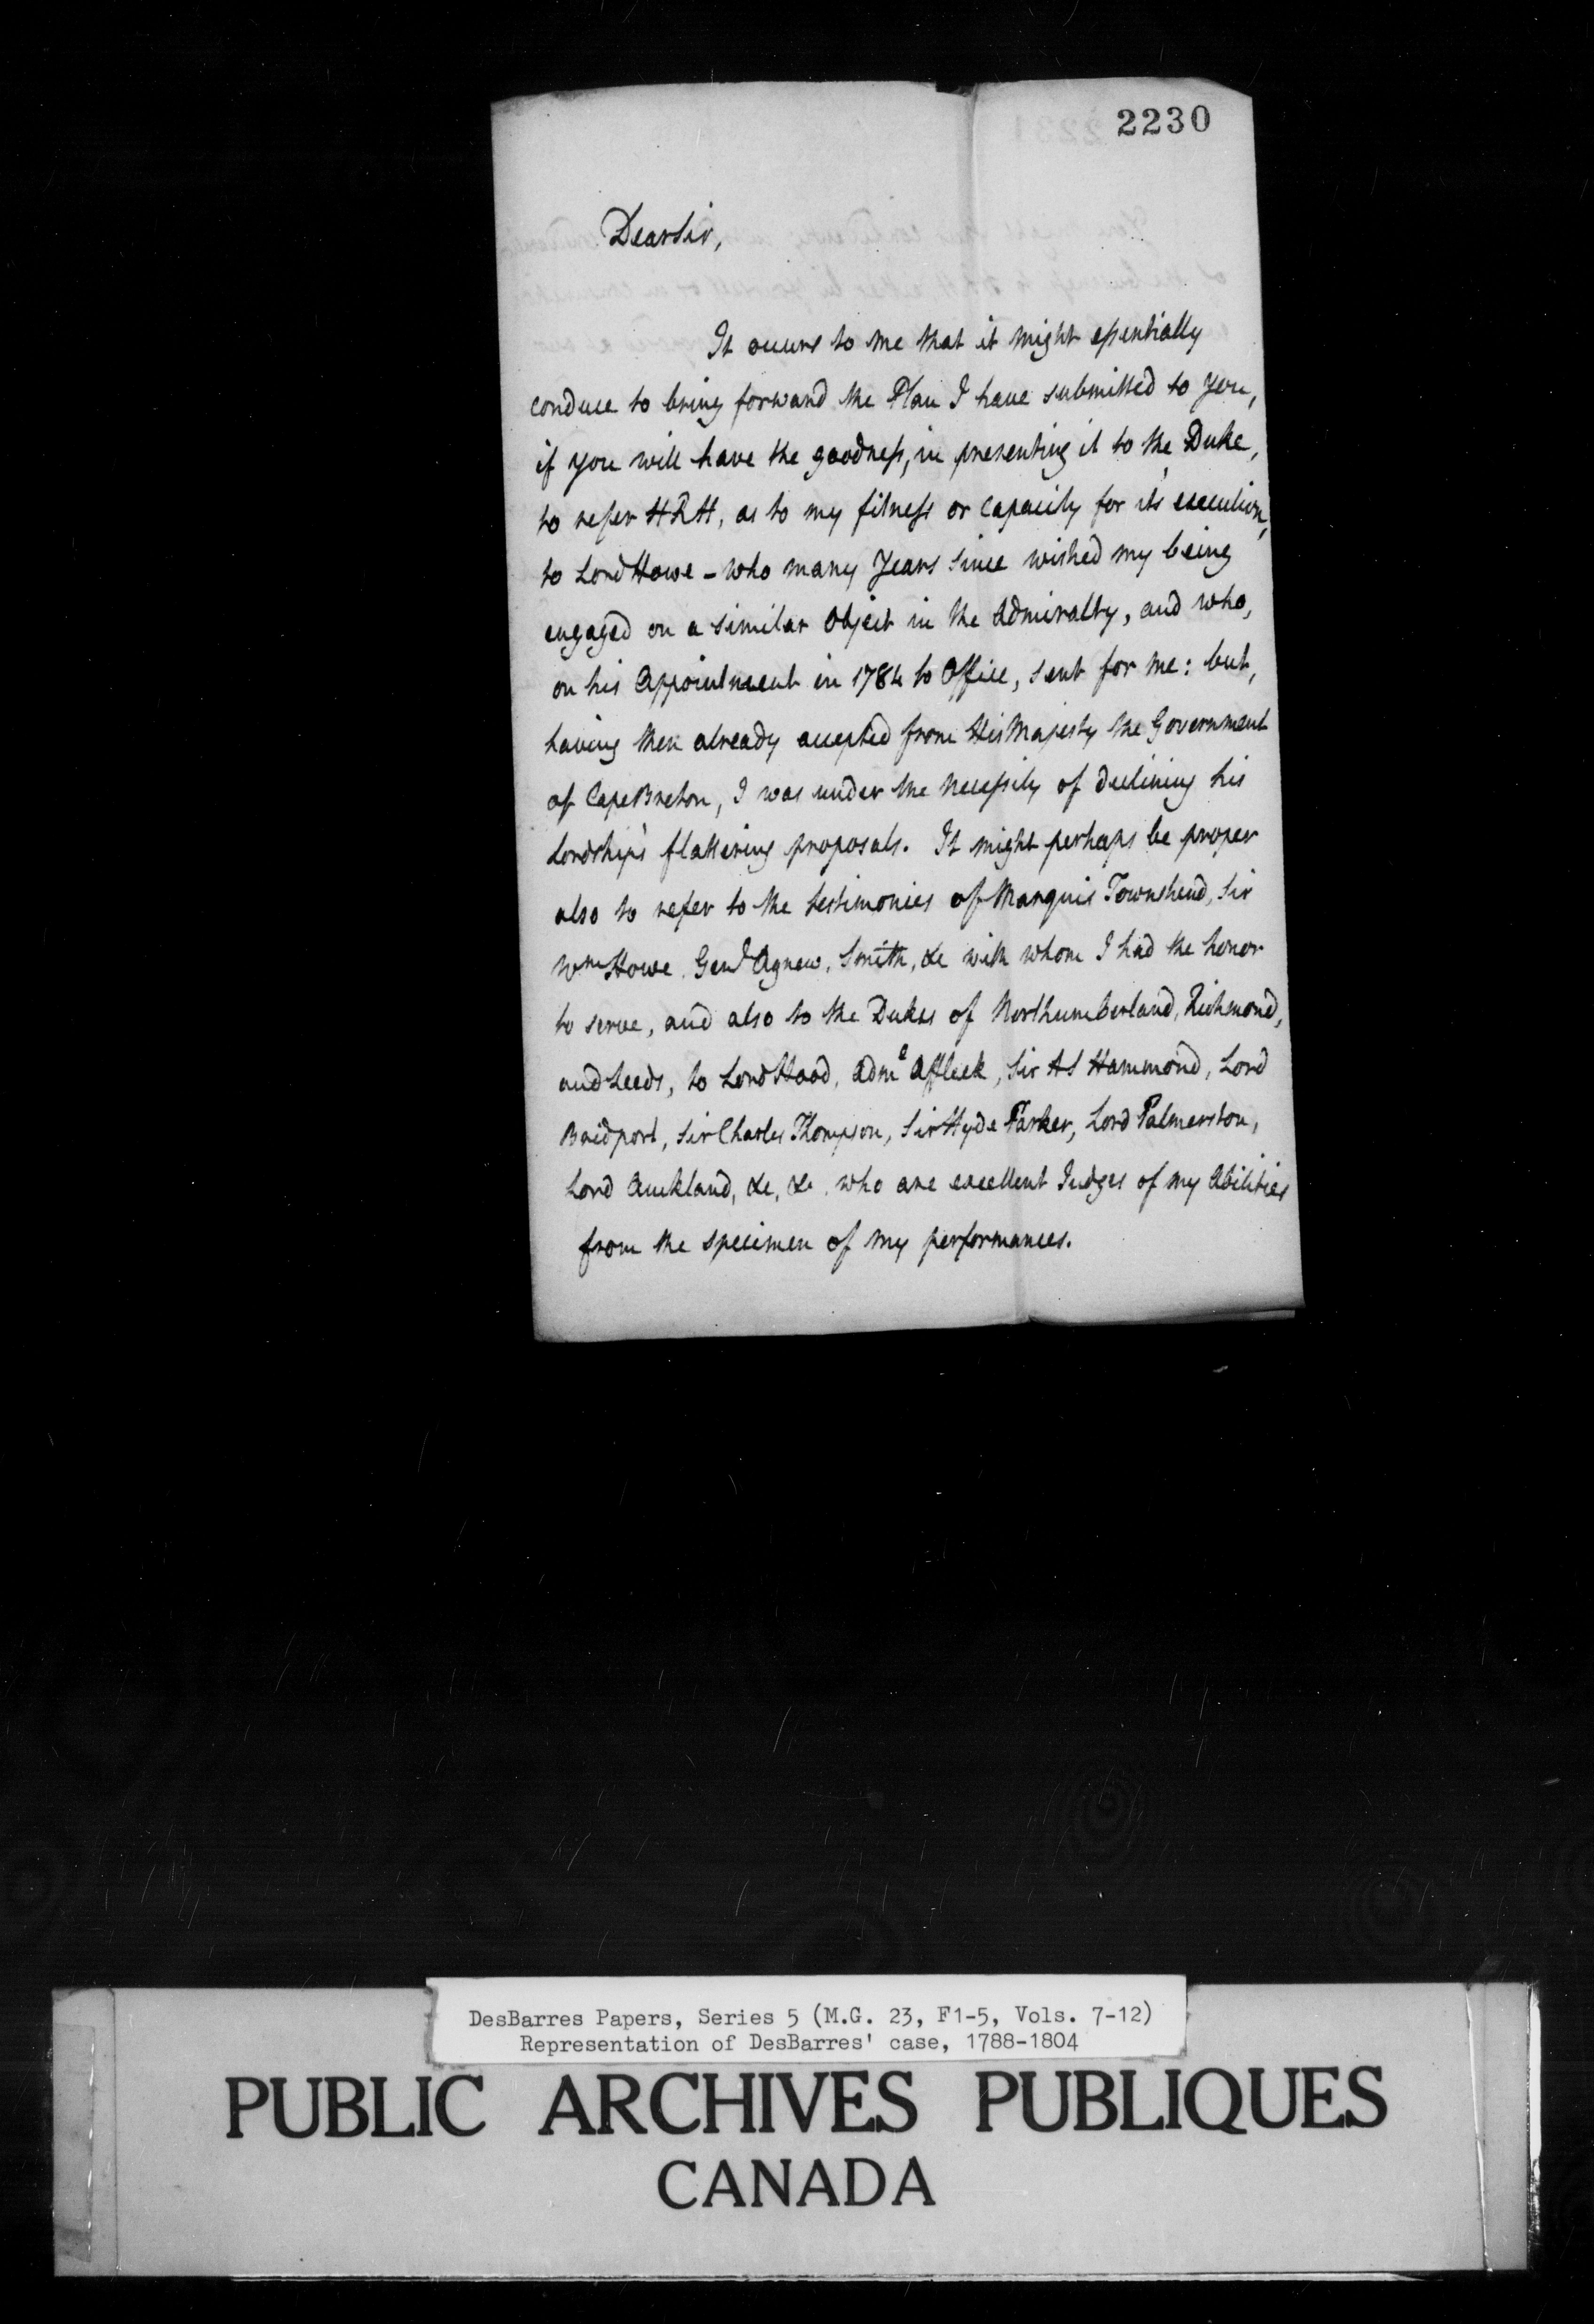 2230
Dear Sir,
It occurs to me that it might essentially
conduce to bring forward the Plan I have submitted to you,
if you will have the goodness, in presenting it to the Duke,
to refer HRH, as to my fitness or capacity for it's execution,
to Lord Howe - who many Years since wished my being
engaged on a similar Object in the Admiralty, and who,
on his Appointment in 1784 to Office, sent for me: but,
having then already accepted from His Majesty the Government
of Cape Breton, I was under the necessity of declining his
Lordship's flattering proposals. It might perhaps be proper
also to refer to the testimonies of Marquis Townshend, Sir
Wm Howe, Genl Agnew, Smith, &c with whom I had the honor
to serve, and also to the Dukes of Northumberland, Richmond,
and Leeds, to Lord Hood, Adml Affleck, Sir AS Hammond, Lord
Bridport, Sir Charles Thompson, Sir Hyde Parker, Lord Palmerston,
Lord Auckland, &c, &c. who are excellent Judges of my Abilities
from the specimen of my performances.
DesBarres Papers, Series 5 (M.G. 23, F1-5, Vols. 7-12)
Representation of DesBarres' case, 1788-1804
PUBLIC ARCHIVES PUBLIQUES
CANADA